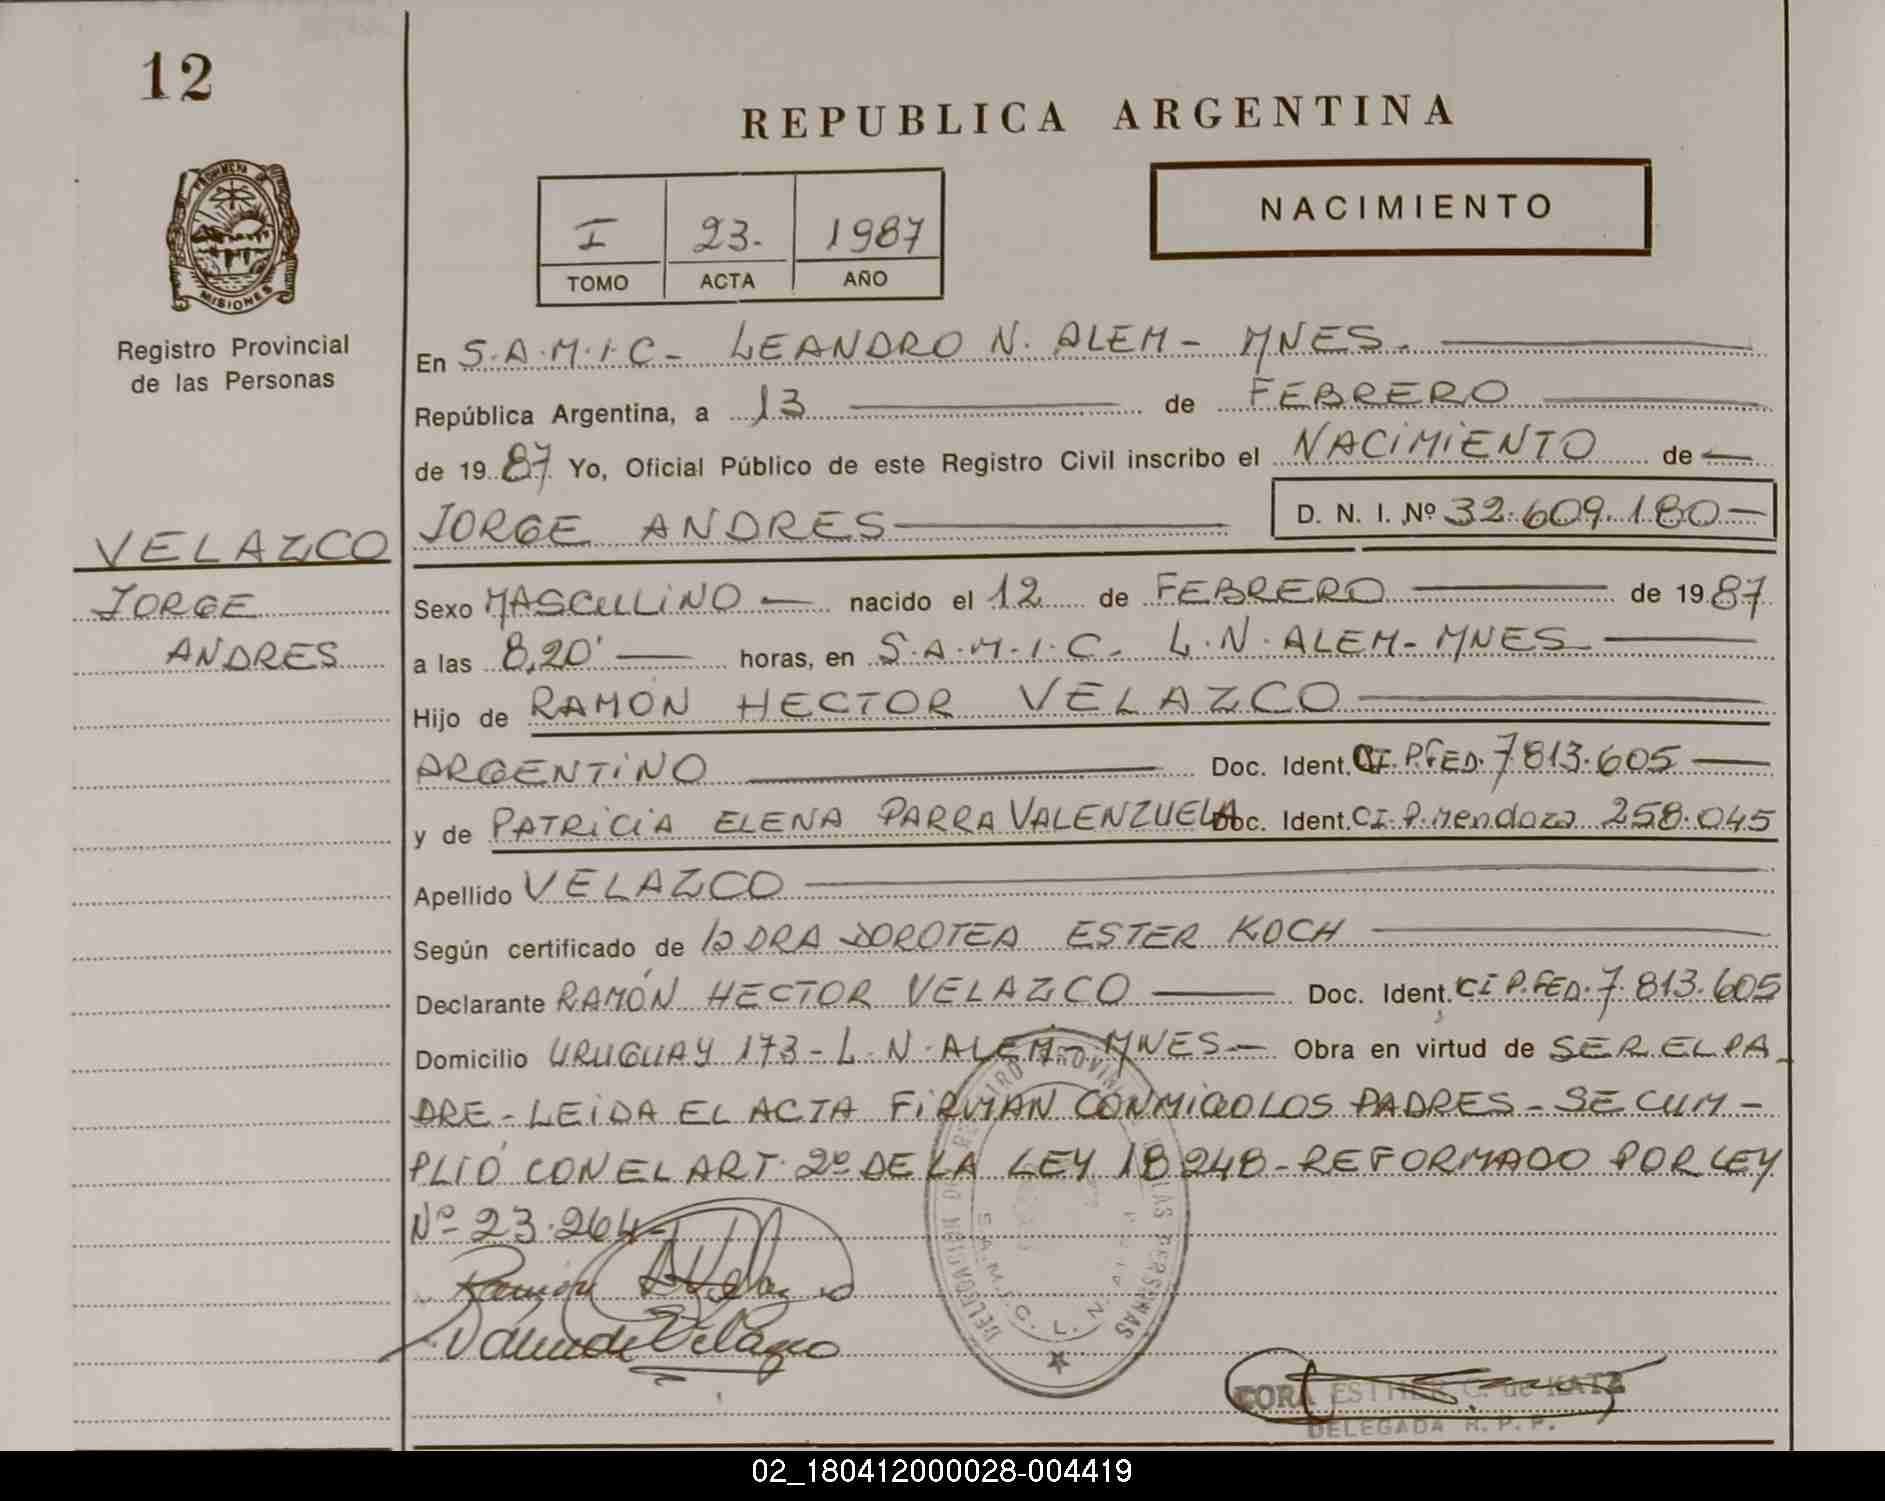 12
REPUBLICA ARGENTINA
PROVINCIA DE
MISIONES
I 23. 1987
TOMO ACTA AÑO
NACIMIENTO
Registro Provincial
de las Personas
En S.A.M.I.C- LEANDRO N. ALEM- MNES.
República Argentina, a 13 de FEBRERO
de 19 87 Yo, Oficial Público de este Registro Civil inscribo el NACIMIENTO de
JORGE ANDRES D. N. I. Nº 32.609.180
VELAZCO
JORGE
ANDRES
Sexo MASCULINO nacido el 12 de FEBRERO de 19 87
a las 8,20' horas, en S.A.M.I.C. L.N. ALEM- MNES
Hijo de RAMÓN HECTOR VELAZCO
ARGENTINO Doc. Ident. CI. P.FED. 7.813.605
y de PATRICIA ELENA PARRA VALENZUELA Doc. Ident. CI. P. Mendoza 258.045
Apellido VELAZCO
Según certificado de la DRA DOROTEA ESTER KOCH
Declarante RAMÓN HECTOR VELAZCO Doc. Ident. CI P.FED. 7.813.605
Domicilio URUGUAY 173- L.N. ALEM- MNES- Obra en virtud de SER EL PA-
DRE- LEIDA EL ACTA FIRMAN CONMIGO LOS PADRES- SE CUM-
PLIÓ CON EL ART. 2º DE LA LEY 18248- REFORMADO POR LEY
Nº 23.264-
Ramón
de Velazco
REGISTRO PROVINCIAL DE LAS PERSONAS
S.A.M.I.C. L. N. ALEM
CORA ESTHER C. de KATZ
DELEGADA R. P. P.
02_180412000028-004419